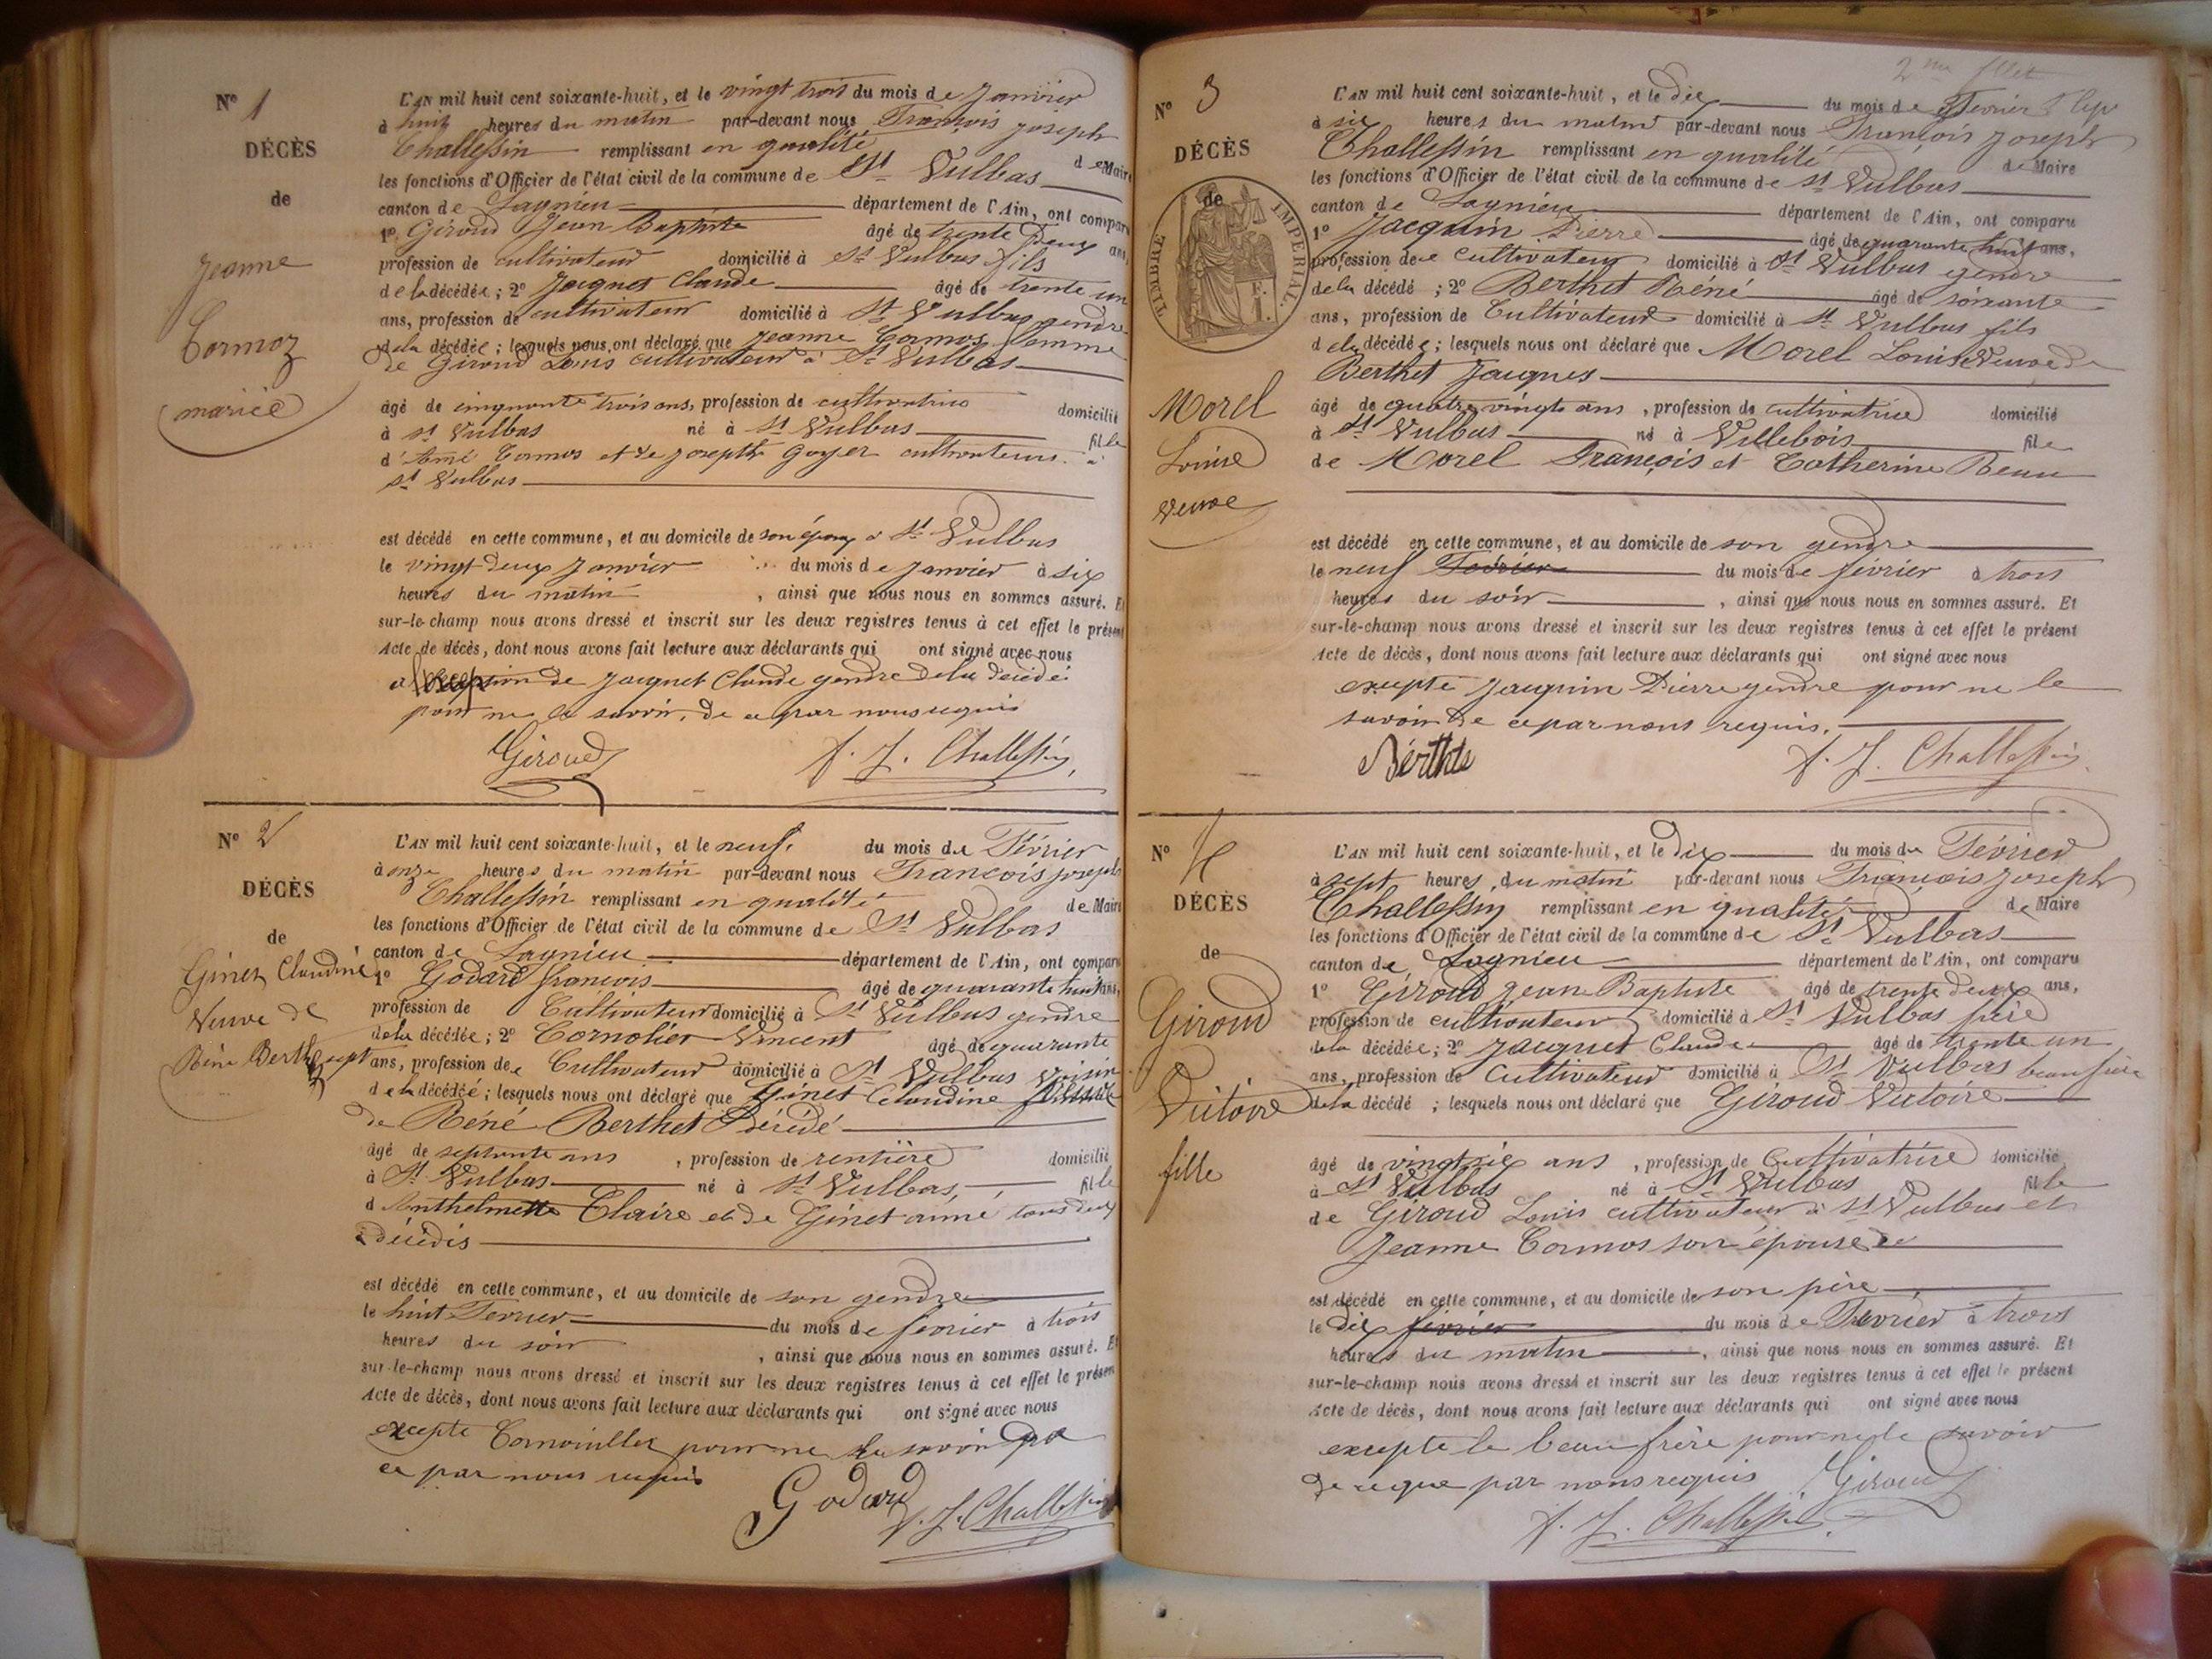 N° 1
DÉCÈS
de
Jeanne
Cormoz
mariée
L'AN mil huit cent soixante-huit, et le vingt trois du mois de Janvier
à huit heures du matin par-devant nous François joseph
Challessin remplissant en qualité de Maire
les fonctions d'Officier de l'état civil de la commune de St Vulbas
canton de Lagnieu département de l'Ain, ont comparu
1° Giroud Jean Baptiste âgé de trente deux ans,
profession de cultivateur domicilié à St Vulbas fils
de la décédée ; 2° Jacquet Claude âgé de trente un
ans, profession de cultivateur domicilié à St Vulbas gendre
de la décédée ; lesquels nous ont déclaré que Jeanne Cormos femme
de Giroud Louis cultivateur à St Vulbas
âgé de cinquante trois ans, profession de cultivatrice domicilié
à St Vulbas né à St Vulbas fille
d'Amé Cormos et de josepth Goyer cultivateurs à
St Vulbas
est décédé en cette commune, et au domicile de son époux à St Vulbas
le vingt deux Janvier du mois de Janvier à six
heures du matin , ainsi que nous nous en sommes assuré. Et
sur-le-champ nous avons dressé et inscrit sur les deux registres tenus à cet effet le présent
Acte de décès, dont nous avons fait lecture aux déclarants qui ont signé avec nous
de Jacquet Claude gendre de la décédé
pour ne le savoir, de ce par nous requis
Giroud F. J. Challessin
N° 2
DÉCÈS
de
Ginet Claudine
Veuve de
Réné Berthet
L'AN mil huit cent soixante-huit, et le neuf du mois de Février
à onze heures du matin par-devant nous François joseph
Challessin remplissant en qualité de Maire
les fonctions d'Officier de l'état civil de la commune de St Vulbas
canton de Lagnieu département de l'Ain, ont comparu
1° Godard françois âgé de quarante huit ans,
profession de Cultivateur domicilié à St Vulbas gendre
de la décédée ; 2° Cornolier Vincent âgé de quarante
sept ans, profession de Cultivateur domicilié à St Vulbas voisin
de la décédée ; lesquels nous ont déclaré que Ginet Claudine
de Réné Berthet Décédé
âgé de septante ans , profession de rentière domicilié
à St Vulbas né à St Vulbas, fille
d Anthelmette Claire et de Ginet aimé tous deux
décédés
est décédé en cette commune, et au domicile de son gendre
le huit Fevrier du mois de fevrier à trois
heures du soir , ainsi que nous nous en sommes assuré. Et
sur-le-champ nous avons dressé et inscrit sur les deux registres tenus à cet effet le présent
Acte de décès, dont nous avons fait lecture aux déclarants qui ont signé avec nous
excepté Cornouillet pour ne le savoir de
ce par nous requis
Godard F. J. Challessin
2me fllet
N° 3
DÉCÈS
de
TIMBRE IMPERIAL
Morel
Louise
veuve
L'AN mil huit cent soixante-huit, et le dix du mois de Fevrier
à six heures du matin par-devant nous François Joseph
Challessin remplissant en qualité de Maire
les fonctions d'Officier de l'état civil de la commune de St Vulbas
canton de Lagnieu département de l'Ain, ont comparu
1° Jacquin Pierre âgé de quarante huit ans,
profession de Cultivateur domicilié à St Vulbas gendre
de la décédé ; 2° Berthet Réné âgé de soixante
ans, profession de Cultivateur domicilié à St Vulbas fils
de la décédée ; lesquels nous ont déclaré que Morel Louise Veuve de
Berthet Jacques
âgé de quatre vingts ans , profession de cultivatrice domicilié
à St Vulbas né à Villebois file
de Morel François et Catherine Beau
est décédé en cette commune, et au domicile de son gendre
le neuf Fevrier du mois de février à trois
heures du soir , ainsi que nous nous en sommes assuré. Et
sur-le-champ nous avons dressé et inscrit sur les deux registres tenus à cet effet le présent
Acte de décès, dont nous avons fait lecture aux déclarants qui ont signé avec nous
excepté Jacquin Pierre gendre pour ne le
savoir de ce par nous requis.
Bérthte F. J. Challessin
N° 4
DÉCÈS
de
Giroud
Victoire
fille
L'AN mil huit cent soixante-huit, et le dix du mois de Février
à sept heures du matin par-devant nous François Joseph
Challessin remplissant en qualité de Maire
les fonctions d'Officier de l'état civil de la commune de St Vulbas
canton de Lagnieu département de l'Ain, ont comparu
1° Giroud jean Baptiste âgé de trente deux ans,
profession de cultivateur domicilié à St Vulbas frère
de la décédée ; 2° Jacquet Claude âgé de trente un
ans, profession de Cultivateur domicilié à St Vulbas beau frère
de la décédé ; lesquels nous ont déclaré que Giroud Victoire
âgé de vingt six ans , profession de Cultivatrice domicilié
à St Vulbas né à St Vulbas fille
de Giroud Louis cultivateur à St Vulbas et
Jeanne Cormos son épouse
est décédé en cette commune, et au domicile de son père
le dix février du mois de Février à trois
heures du matin , ainsi que nous nous en sommes assuré. Et
sur-le-champ nous avons dressé et inscrit sur les deux registres tenus à cet effet le présent
Acte de décès, dont nous avons fait lecture aux déclarants qui ont signé avec nous
excepté le beau frère pour ne le savoir
de ce que par nous requis Giroud
F. J. Challessin